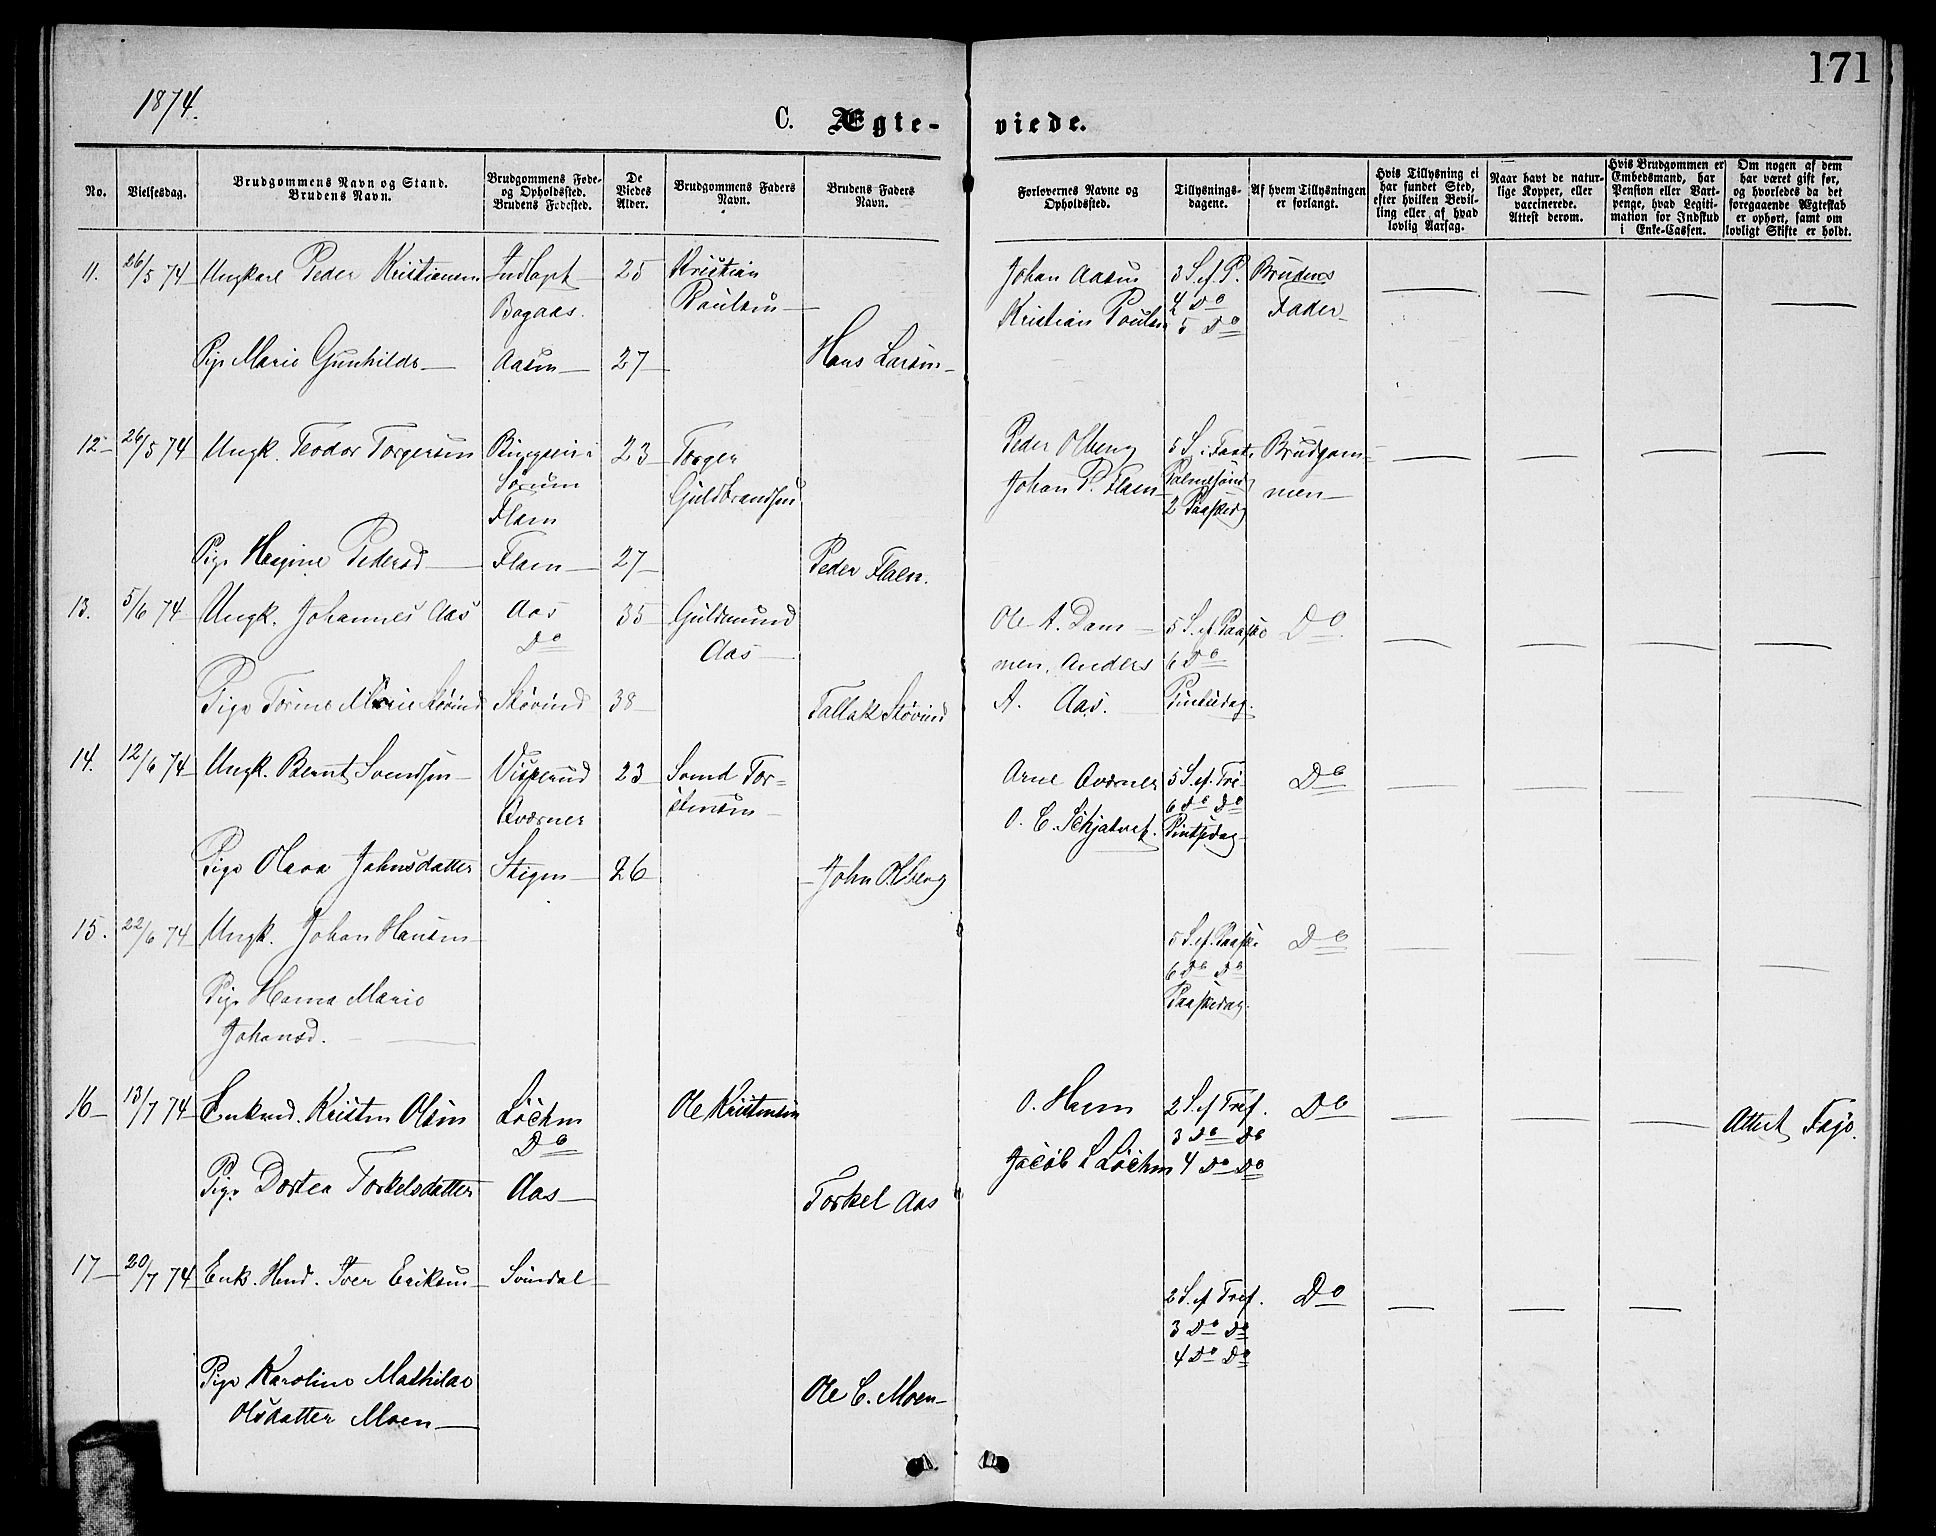 171
1874.
C. Ægte-
viede.
No.
Vielsesdag.
Brudgommens Navn og Stand.
Brudens Navn.
Brudgommens Føde-
og Opholdssted.
Brudens Fødested.
De
Viedes
Alder.
Brudgommens Faders
Navn.
Brudens Faders
Navn.
Forlovernes Navne og
Opholdssted.
Tillysnings-
dagene.
Af hvem Tillysningen
er forlangt.
Hvis Tillysning ei
har fundet Sted,
efter hvilken Bevil-
ling eller af hvad
lovlig Aarsag.
Naar havt de natur-
lige Kopper, eller
vaccinerede.
Attest derom.
Hvis Brudgommen er
Embedsmand, har
Pension eller Vart-
penge, hvad Legiti-
mation for Indskud
i Enke-Cassen.
Om nogen af dem
har været gift før,
og hvorledes da det
foregaaende Ægteskab
er ophørt, samt om
lovligt Skifte er holdt.
11. 26/5 74 Ungkarl Peder Kristiansen 25 Kristian Johan Aasen 3 S. ef. P. Brudens
Bagaas. Poulsen Kristian Poulsen 4 Do Fader
5 Do
Pige Marie Gunhilde Aasen 27 Hans Larsen
12 26/5 74 Ungk. Teodor Torgersen 23 Torger Peder Olberg 5 S. i Faste Brudgom-
Sørum Guldbrandsen Johan P. Flaen Palmesønd men
Flaen 2 Paaskedg
Pige Pedersd Flaen 27 Peder Flaen.
13. 5/6 74 Ungk. Johannes Aas Aas 35 Gudmund Ole A. Dam 5 S. ef. Paaske Do
Do Aas men, Anders 6 Do
Pige Torine Marie Støvind Støvind 38 Tallak Støvind A. Aas. Pintsedag.
14. 12/6 74 Ungk. Bernt Svendsen 23 Svend Tor= Arne Qværner 5 S. ef. Do
Qværner stensen 6 Do Do
Pintsedag
Pige Olava Johnsdatter Stigen 26 John Olberg
15. 22/6 74 Ungk. Johan Hansen 5 S. ef. Paaske Do
6 Do Do
Pige Hanna Marie Paaskedag.
Johansd.
16 13/7 74 Enkemd. Kristen Olsen Løchen Ole Kristensen O. Hagen 2 S. ef Tref. Do Attest
Do 3 Do Do
Jacob L Løchen 4 Do Do
Pige Dortea Torkelsdatter Aas Torkel Aas
17 20/7 74 Enk. Mnd. Iver Eriksen Svindal 2 S. ef Tref. Do
3 Do Do
4 Do Do
Pige Karoline Mathilde Ole C. Moen
Olsdatter Moen